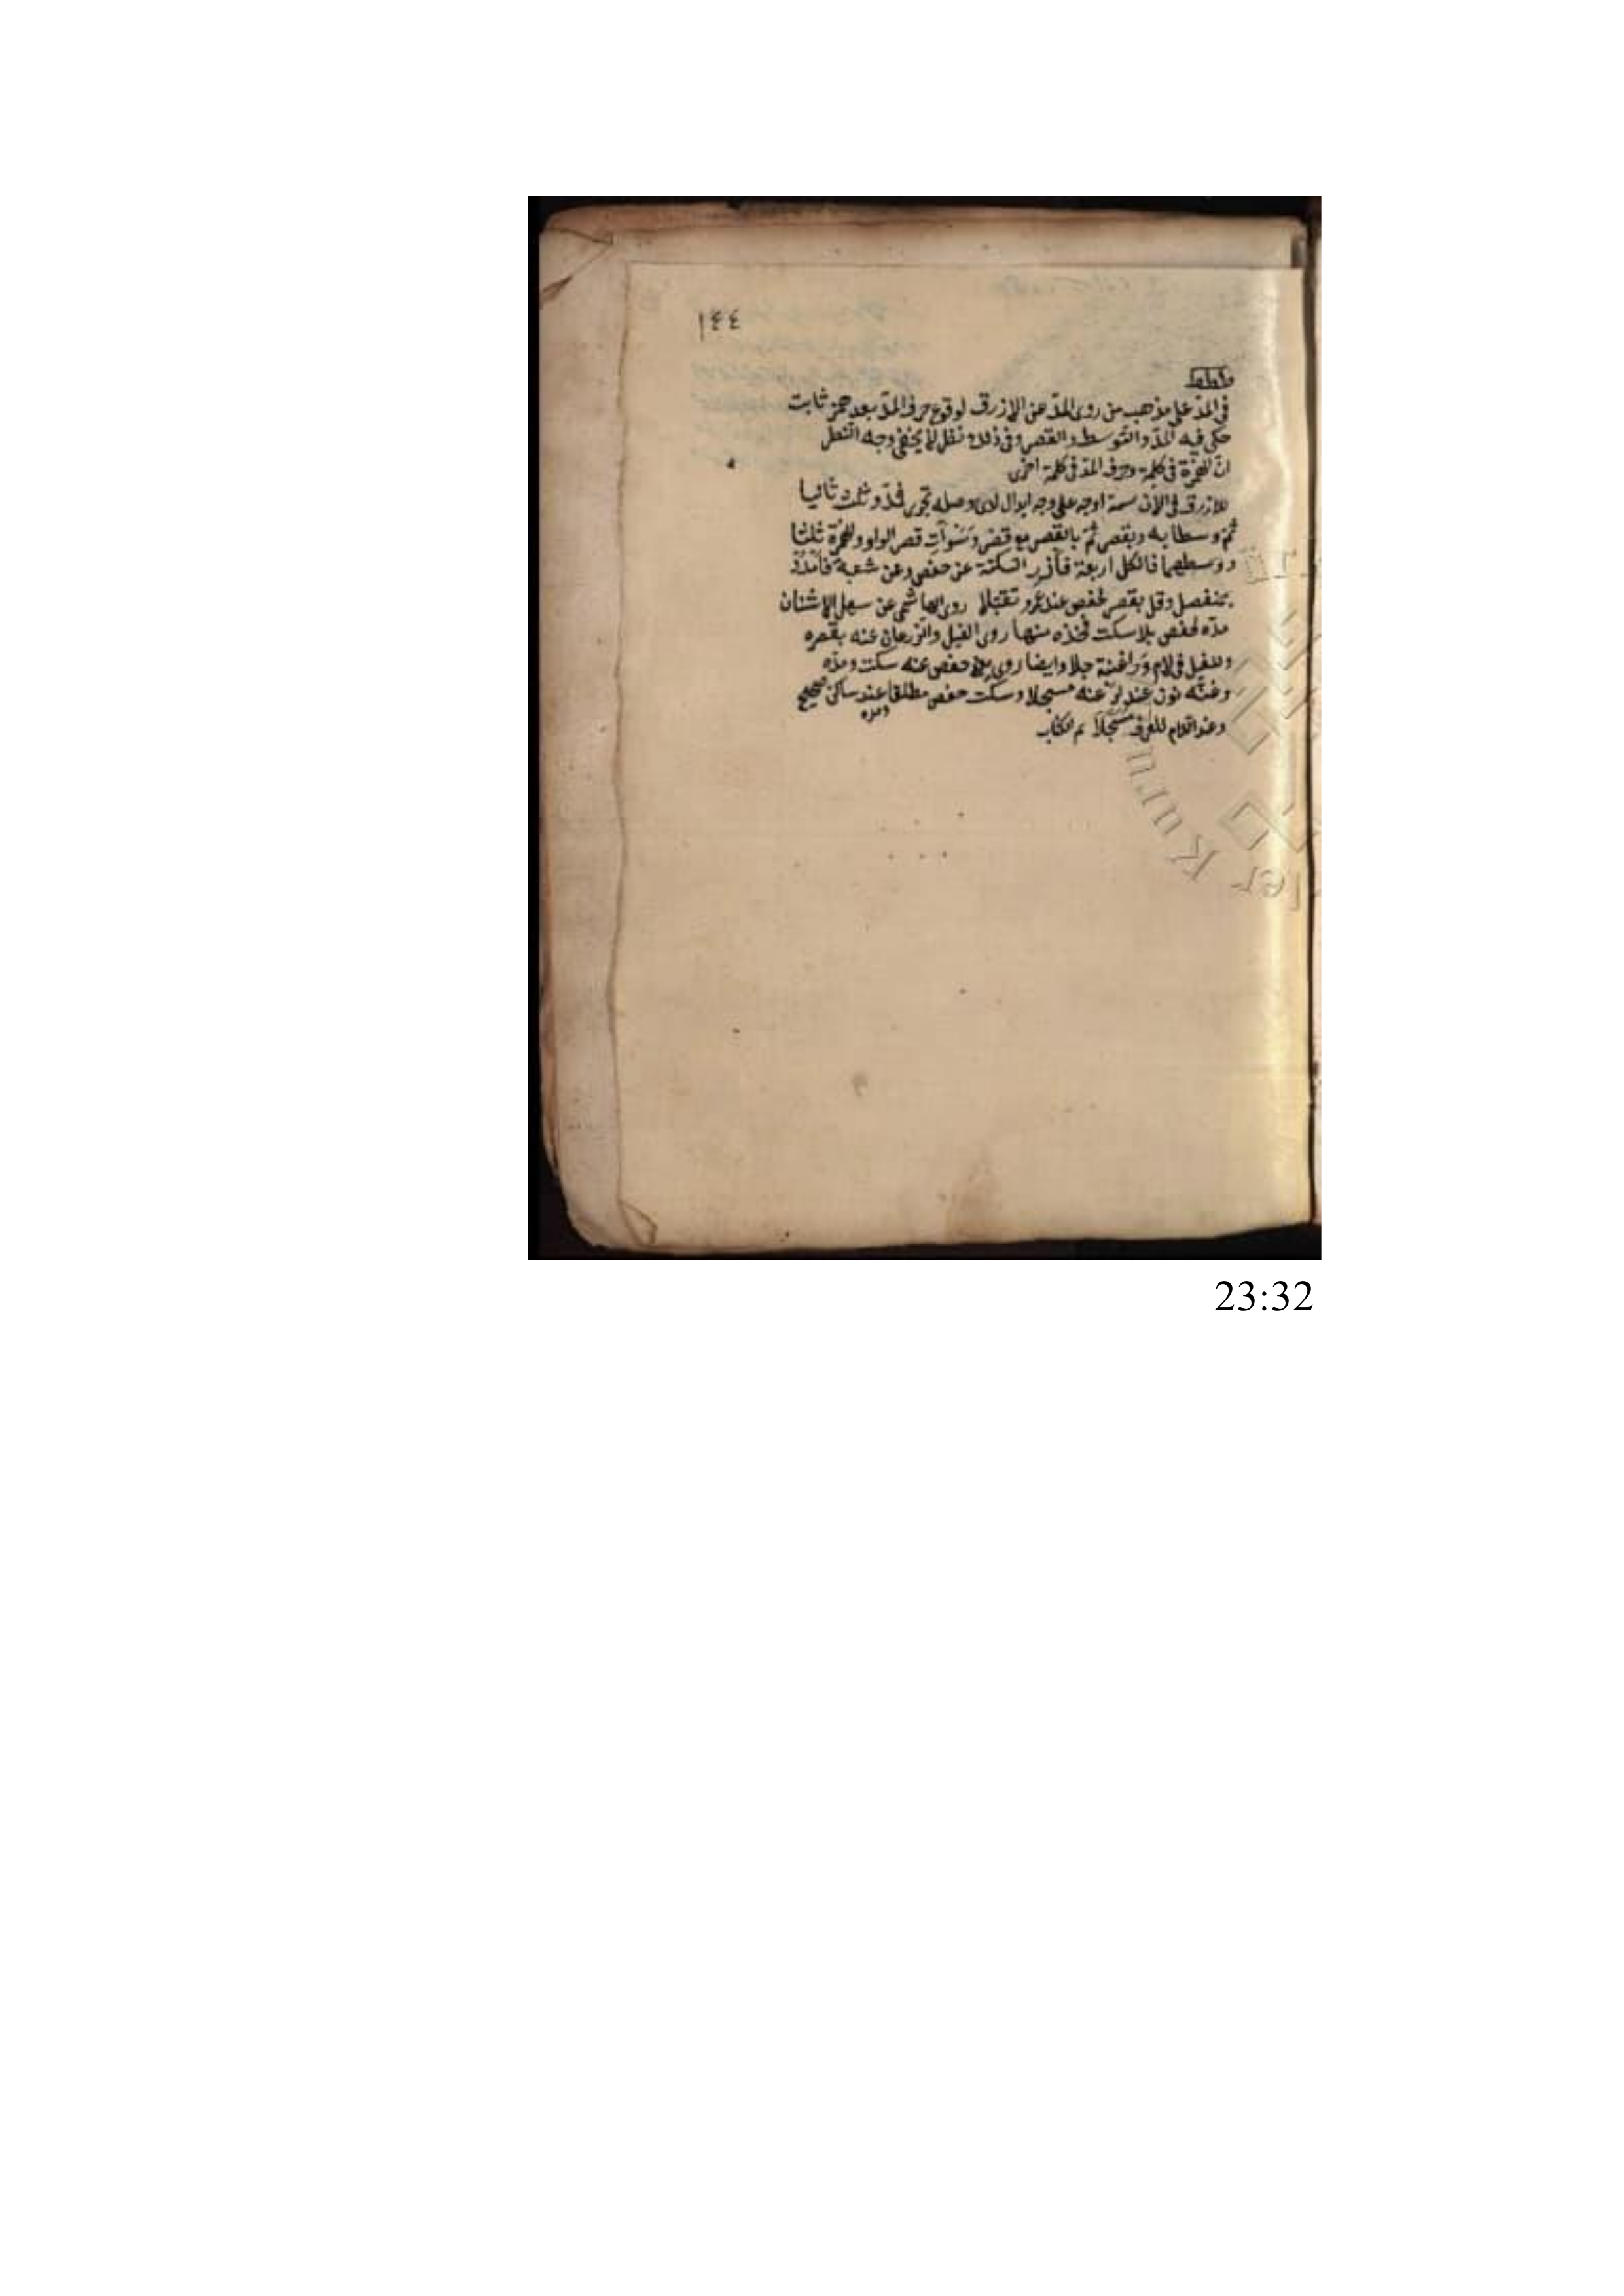 ١٤٤
في المد على مذهب من روى المد عن الازرق لوقوع حرف المد بعد همز ثابت
حكى فيه المد والتوسط والقصر وفي ذلك نظر لا يخفى وجه النظر
ان الهمزة في كلمة وحرف المد في كلمة اخرى
للازرق في الآن ستة اوجه على وجه ابدال لدى وصله تجري فمد وثلث ثانيا
ثم وسطا به وبقصر ثم بالقصر مع قصر وسوآت قصر الواو والهمزة ثلثا
ووسطهما فالكل اربعة فآزر السكتة عن حفص وعن شعبة فامدد
بمنفصل وقل بقصر لحفص عند عمرو تقبلا روى الهاشمي عن سهل الاشنان
مده لحفص بلا سكت فخذه منها روى الفيل والزرعان عنه بقصره
وللفيل في لام ورا غنة جلا وايضا روى حفص عنه سكت ومده
وغنة نون عند لر عنه مسجلا وسكت حفص مطلقا عند ساكن صحيح
ومده
وعند اللام للعرف مسجلا تم الكتاب
Kuru
23:32